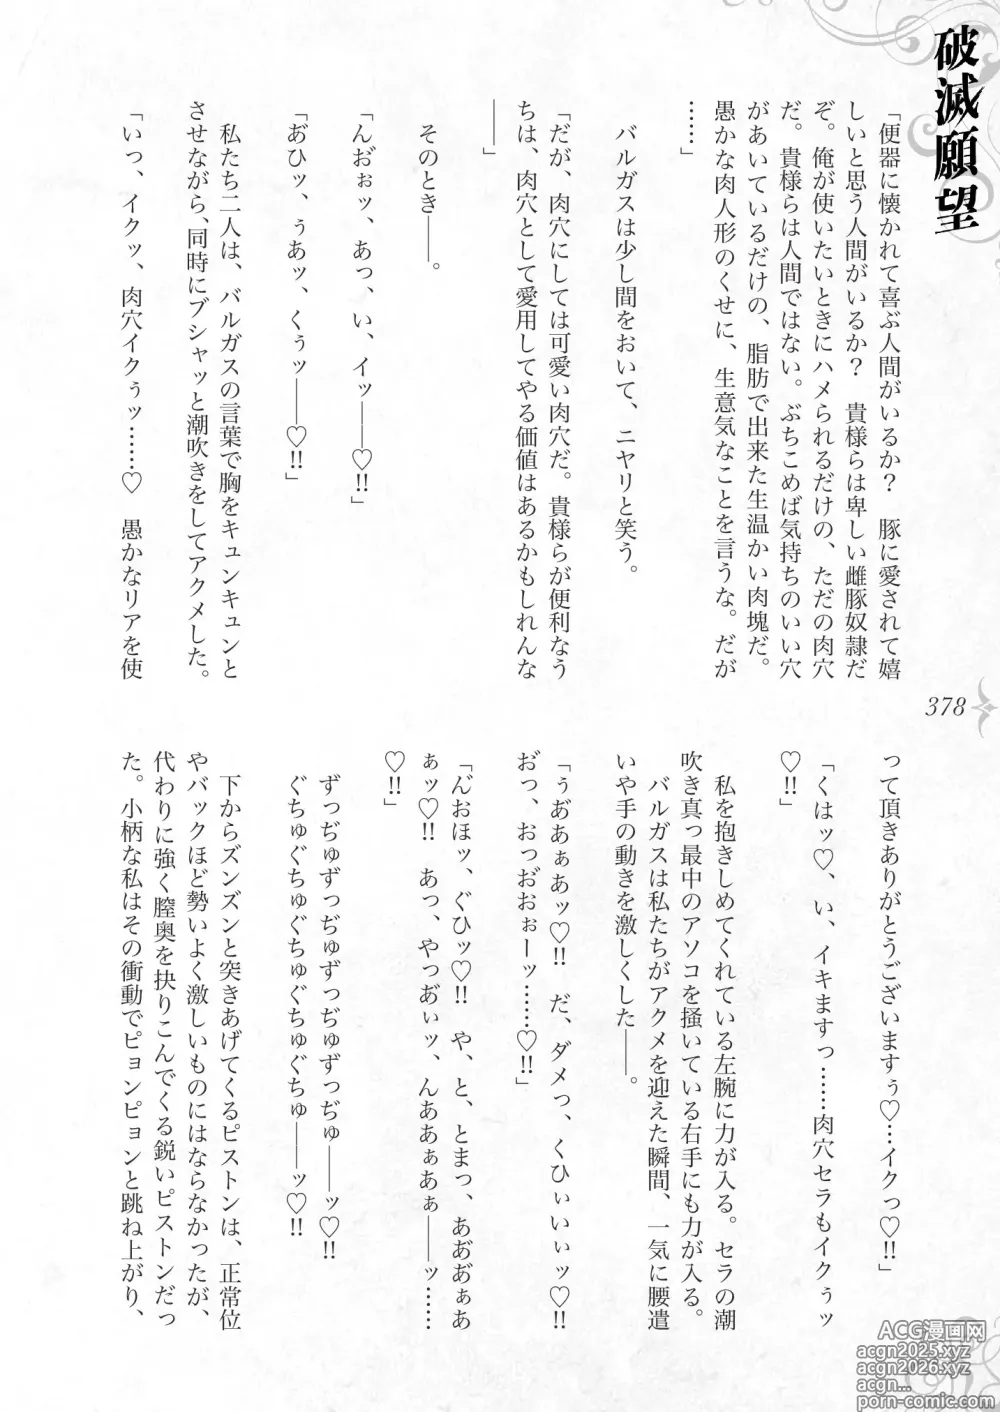 破滅願望
「便器に懐かれて喜ぶ人間がいるか？　豚に愛されて嬉
しいと思う人間がいるか？　貴様らは卑しい雌豚奴隷だ
ぞ。俺が使いたいときにハメられるだけの、ただの肉穴
だ。貴様らは人間ではない。ぶちこめば気持ちのいい穴
があいているだけの、脂肪で出来た生温かい肉塊だ。
愚かな肉人形のくせに、生意気なことを言うな。だが
……」
バルガスは少し間をおいて、ニヤリと笑う。
「だが、肉穴にしては可愛い肉穴だ。貴様らが便利なう
ちは、肉穴として愛用してやる価値はあるかもしれんな
――」
そのとき――。
「んお゛ぉッ、あっ、い、イッ――♡!!」
「あ゛ひッ、ぅあッ、くぅッ――♡!!」
私たち二人は、バルガスの言葉で胸をキュンキュンと
させながら、同時にブシャッと潮吹きをしてアクメした。
「いっ、イクッ、肉穴イクぅッ……♡　愚かなリアを使
378
って頂きありがとうございますぅ♡…イクっ♡!!」
「くはッ♡、い、イキますっ……肉穴セラもイクぅッ
♡!!」
私を抱きしめてくれている左腕に力が入る。セラの潮
吹き真っ最中のアソコを掻いている右手にも力が入る。
バルガスは私たちがアクメを迎えた瞬間、一気に腰遣
いや手の動きを激しくした――。
「ぅあ゛あぁあッ♡!!　だ、ダメっ、くひぃいぃッ♡!!
お゛っ、おっお゛おぉーッ……♡!!」
「ん゛おほッ、ぐひッ♡!!　や、と、とまっ、あ゛あ゛ぁあ
ぁッ♡!!　あっ、やっあ゛ぃッ、んああぁあぁ――ッ……
♡!!」
ずっぢゅずっぢゅずっぢゅずっぢゅ――ッ♡!!
ぐちゅぐちゅぐちゅぐちゅぐちゅ――ッ♡!!
下からズンズンと突きあげてくるピストンは、正常位
やバックほど勢いよく激しいものにはならなかったが、
代わりに強く膣奥を抉りこんでくる鋭いピストンだっ
た。小柄な私はその衝動でピョンピョンと跳ね上がり、
ACG漫画网
acgn2025.xyz
acgn2026.xyz
acgn...
porn-comic.com